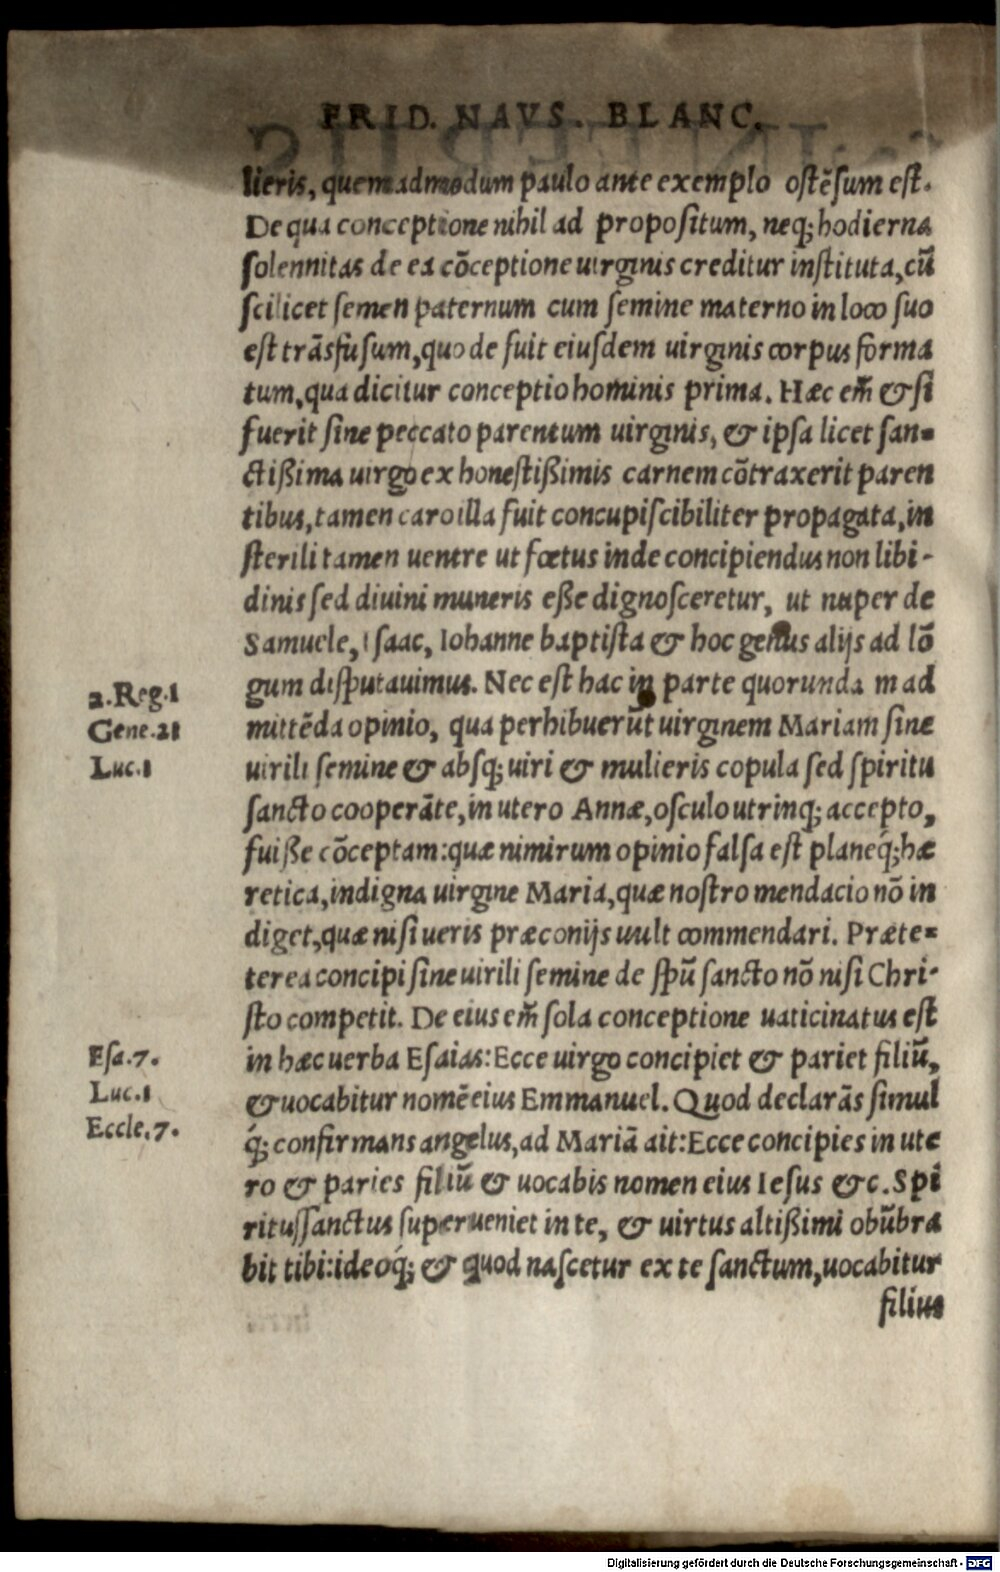 FRID. NAVS. BLANC.
lieris, quemadmodum paulo ante exemplo ostẽsum est.
De qua conceptione nihil ad propositum, neq; hodierna
solennitas de ea cõceptione uirginis creditur instituta, cũ
scilicet semen paternum cum semine materno in loco suo
est trãsfusum, quo de fuit eiusdem uirginis corpus forma
tum, qua dicitur conceptio hominis prima. Hæc em̃ & si
fuerit sine peccato parentum uirginis, & ipsa licet san=
ctißima uirgo ex honestißimis carnem cõtraxerit paren
tibus, tamen caro illa fuit concupiscibiliter propagata, in
sterili tamen uentre ut fœtus inde concipiendus non libi-
dinis sed diuini muneris eße dignosceretur, ut nuper de
Samuele, Isaac, Iohanne baptista & hoc genus alijs ad lõ
gum disputauimus. Nec est hac in parte quorunda m ad
2.Reg.1
Gene.21
Luc.1
mittẽda opinio, qua perhibuerũt uirginem Mariam sine
uirili semine & absq; uiri & mulieris copula sed spiritu
sancto cooperãte, in utero Annæ, osculo utrinq; accepto,
fuiße cõceptam: quæ nimirum opinio falsa est planeq́; hæ
retica, indigna uirgine Maria, quæ nostro mendacio nõ in
diget, quæ nisi ueris præconijs uult commendari. Præte=
terea concipi sine uirili semine de spũ sancto nõ nisi Chri-
sto competit. De eius em̃ sola conceptione uaticinatus est
in hæc uerba Esaias: Ecce uirgo concipiet & pariet filiũ,
Esa.7.
Luc.1
Eccle.7.
& uocabitur nomẽ eius Emmanuel. Quod declarãs simul
q́; confirmans angelus, ad Mariã ait: Ecce concipies in ute
ro & paries filiũ & uocabis nomen eius Iesus &c. Spi
ritussanctus superueniet in te, & uirtus altißimi obũbra
bit tibi: ideoq́; & quod nascetur ex te sanctum, uocabitur
filius
Digitalisierung gefördert durch die Deutsche Forschungsgemeinschaft - DFG